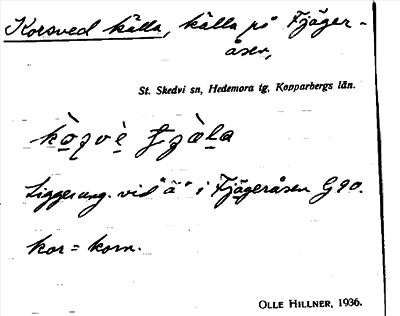 Korsved källa, källa på Fjäger-
åsen,
St. Skedvi sn, Hedemora tg, Kopparbergs län.
Ligger ung. vid "ä" i Fjägeråsen G90.
kor = korn.
OLLE HILLNER, 1936.